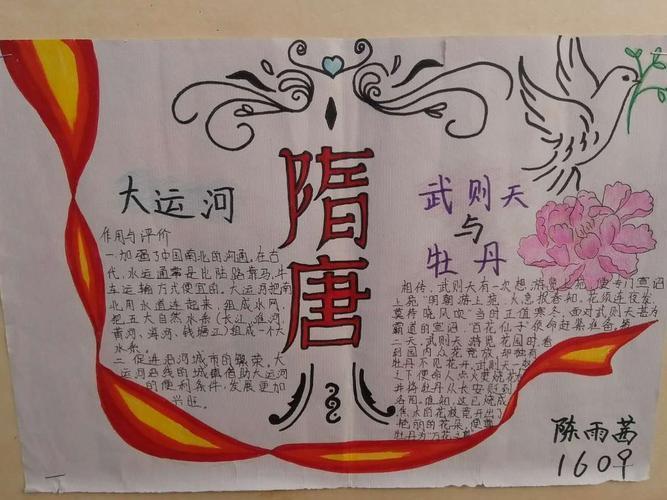 隋唐
大运河
作用与评价
一.加强了中国南北的沟通,在古
代,水运通常是比陆路靠马,牛
车运输方式便宜的,大运河把南
北用水道连起来,组成水网,
把五大自然水系(长江,淮河,
黄河、海河、钱塘江)组成一个大
水系。
二.促进沿河城市的繁荣。大
运河沿线的城镇借助大运河
的便利条件,发展更加
兴旺。
武则天
与
牡丹
相传,武则天有一次想游览上苑,便专门宣诏
上苑,"明朝游上苑,火急报春知,花须连夜发,
莫待晓风吹"当时正值寒冬,面对武则天甚为
霸道的宣诏,"百花仙子"使命赶紧准备,第
二天,武则天游览花园时,看
到园内众花竞放,却独有
牡丹不见花开,武则天一怒
之下便命人点火烧花
并将牡丹从长安贬到
洛阳。谁知,这已烧成
焦木的花枝竟开出了
艳丽的花朵,便
牡丹为"万花之
陈雨茜
1609